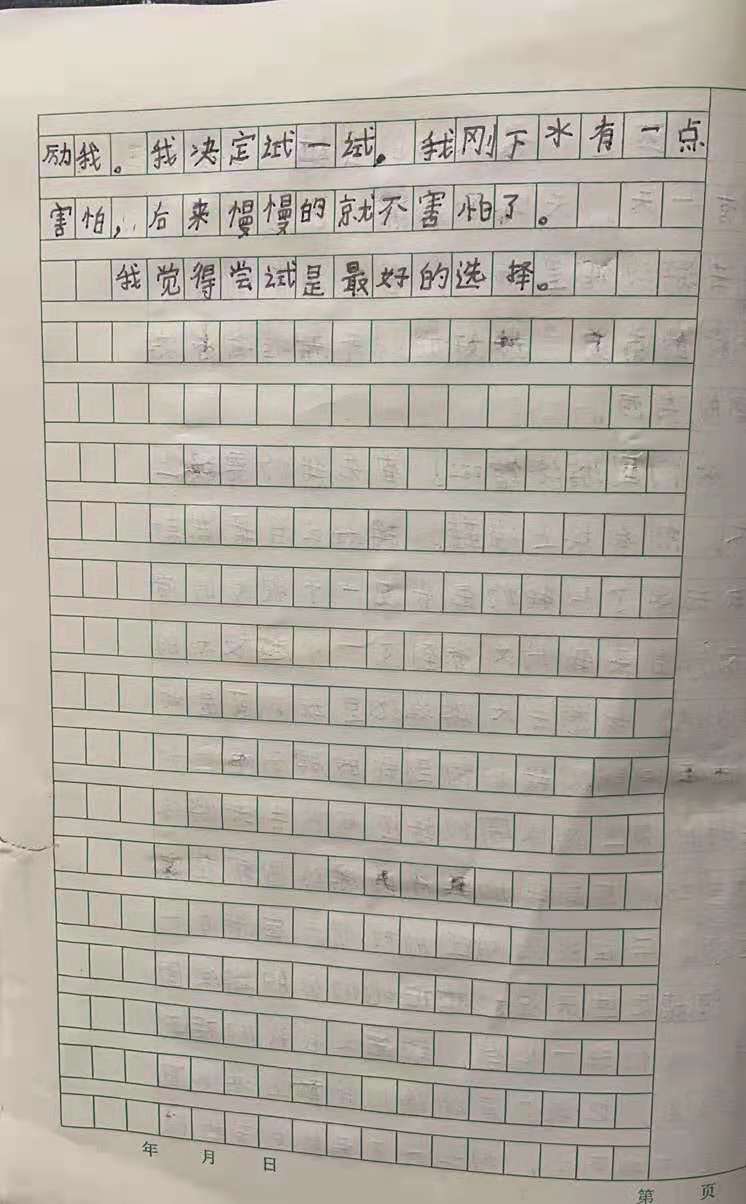 励我。我决定试一试。我刚下水有一点
害怕，后来慢慢的就不害怕了。
我觉得尝试是最好的选择。
年 月 日
第 页